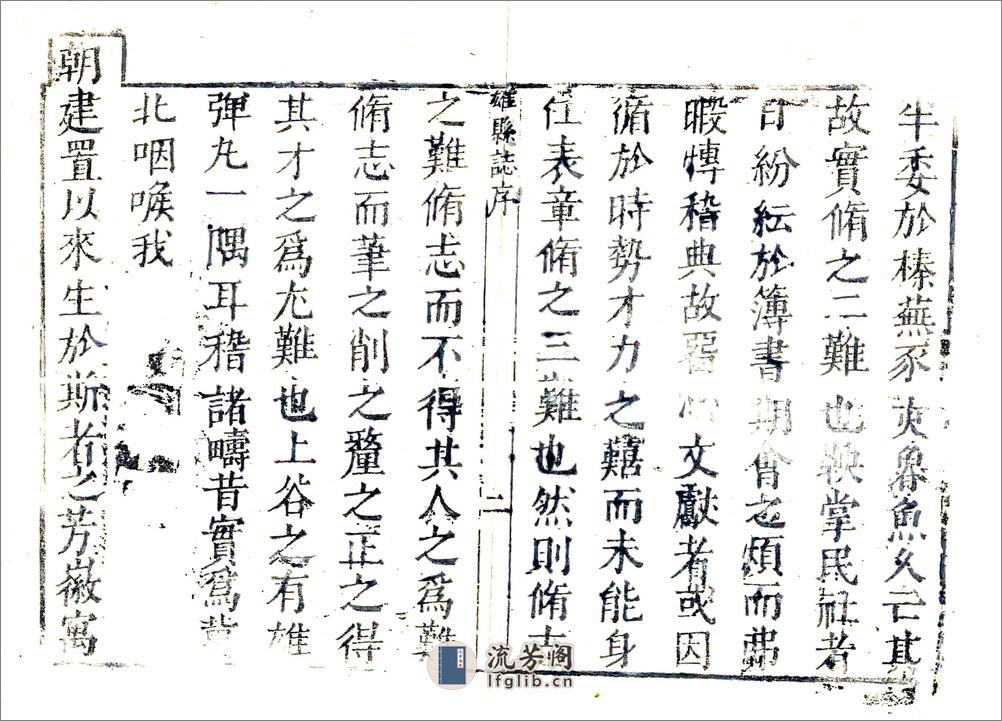 半委於榛蕪豕亥魯魚久亡其
故實脩之二難也鞅掌民社者
日紛紜於簿書期會之煩而弗
暇慱稽典故留心文獻者或因
循於時勢才力之囏而未能身
任表章脩之三難也然則脩志
雄縣誌序
二
之難脩志而不得其人之爲難
脩志而筆之削之釐之正之得
其才之爲尢難也上谷之有雄
弹九一隅耳稽諸疇昔實爲
北咽喉我
朝建置以來生於斯者之芳徽寓
流芳阁
lfglib.cn